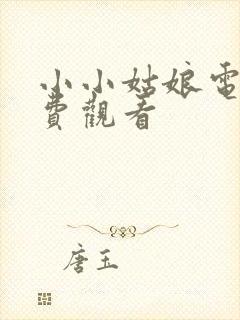 小小姑娘電
費觀看
唐玉